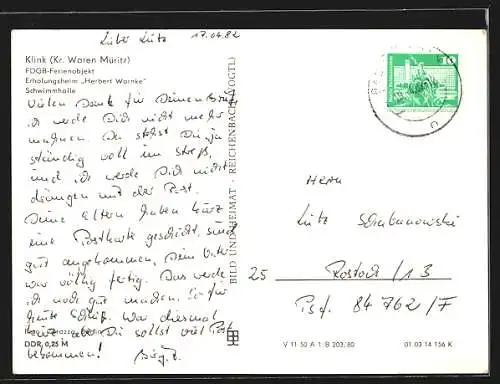 Lieber Lutz 17.04.82
Klink (Kr. Waren Müritz)
FDGB-Ferienobjekt
Erholungsheim „Herbert Warnke"
Schwimmhalle
Vielen Dank für Deinen Brief
ich werde Dich nicht mehr
mahnen. Du stehst Dir ja
ständig voll im Streß,
und ich werde Dich nicht
drängen mit der Post.
Deine Eltern haben kurz
eine Postkarte geschickt, sind
gut angekommen, Dein Vater
war völlig fertig. Das werde
ich noch gut machen. So für
heute Schluß. War diesmal
kurz aber Du sollst viel Post
DDR 0,25 M
bekommen!
BILD UND HEIMAT · REICHENBACH (VOGTL)
V 11 50 A 1 B 203/80
01 03 14 156 K
Herrn
Lutz
25 Rostock / 13
Psf. 84 762 /F